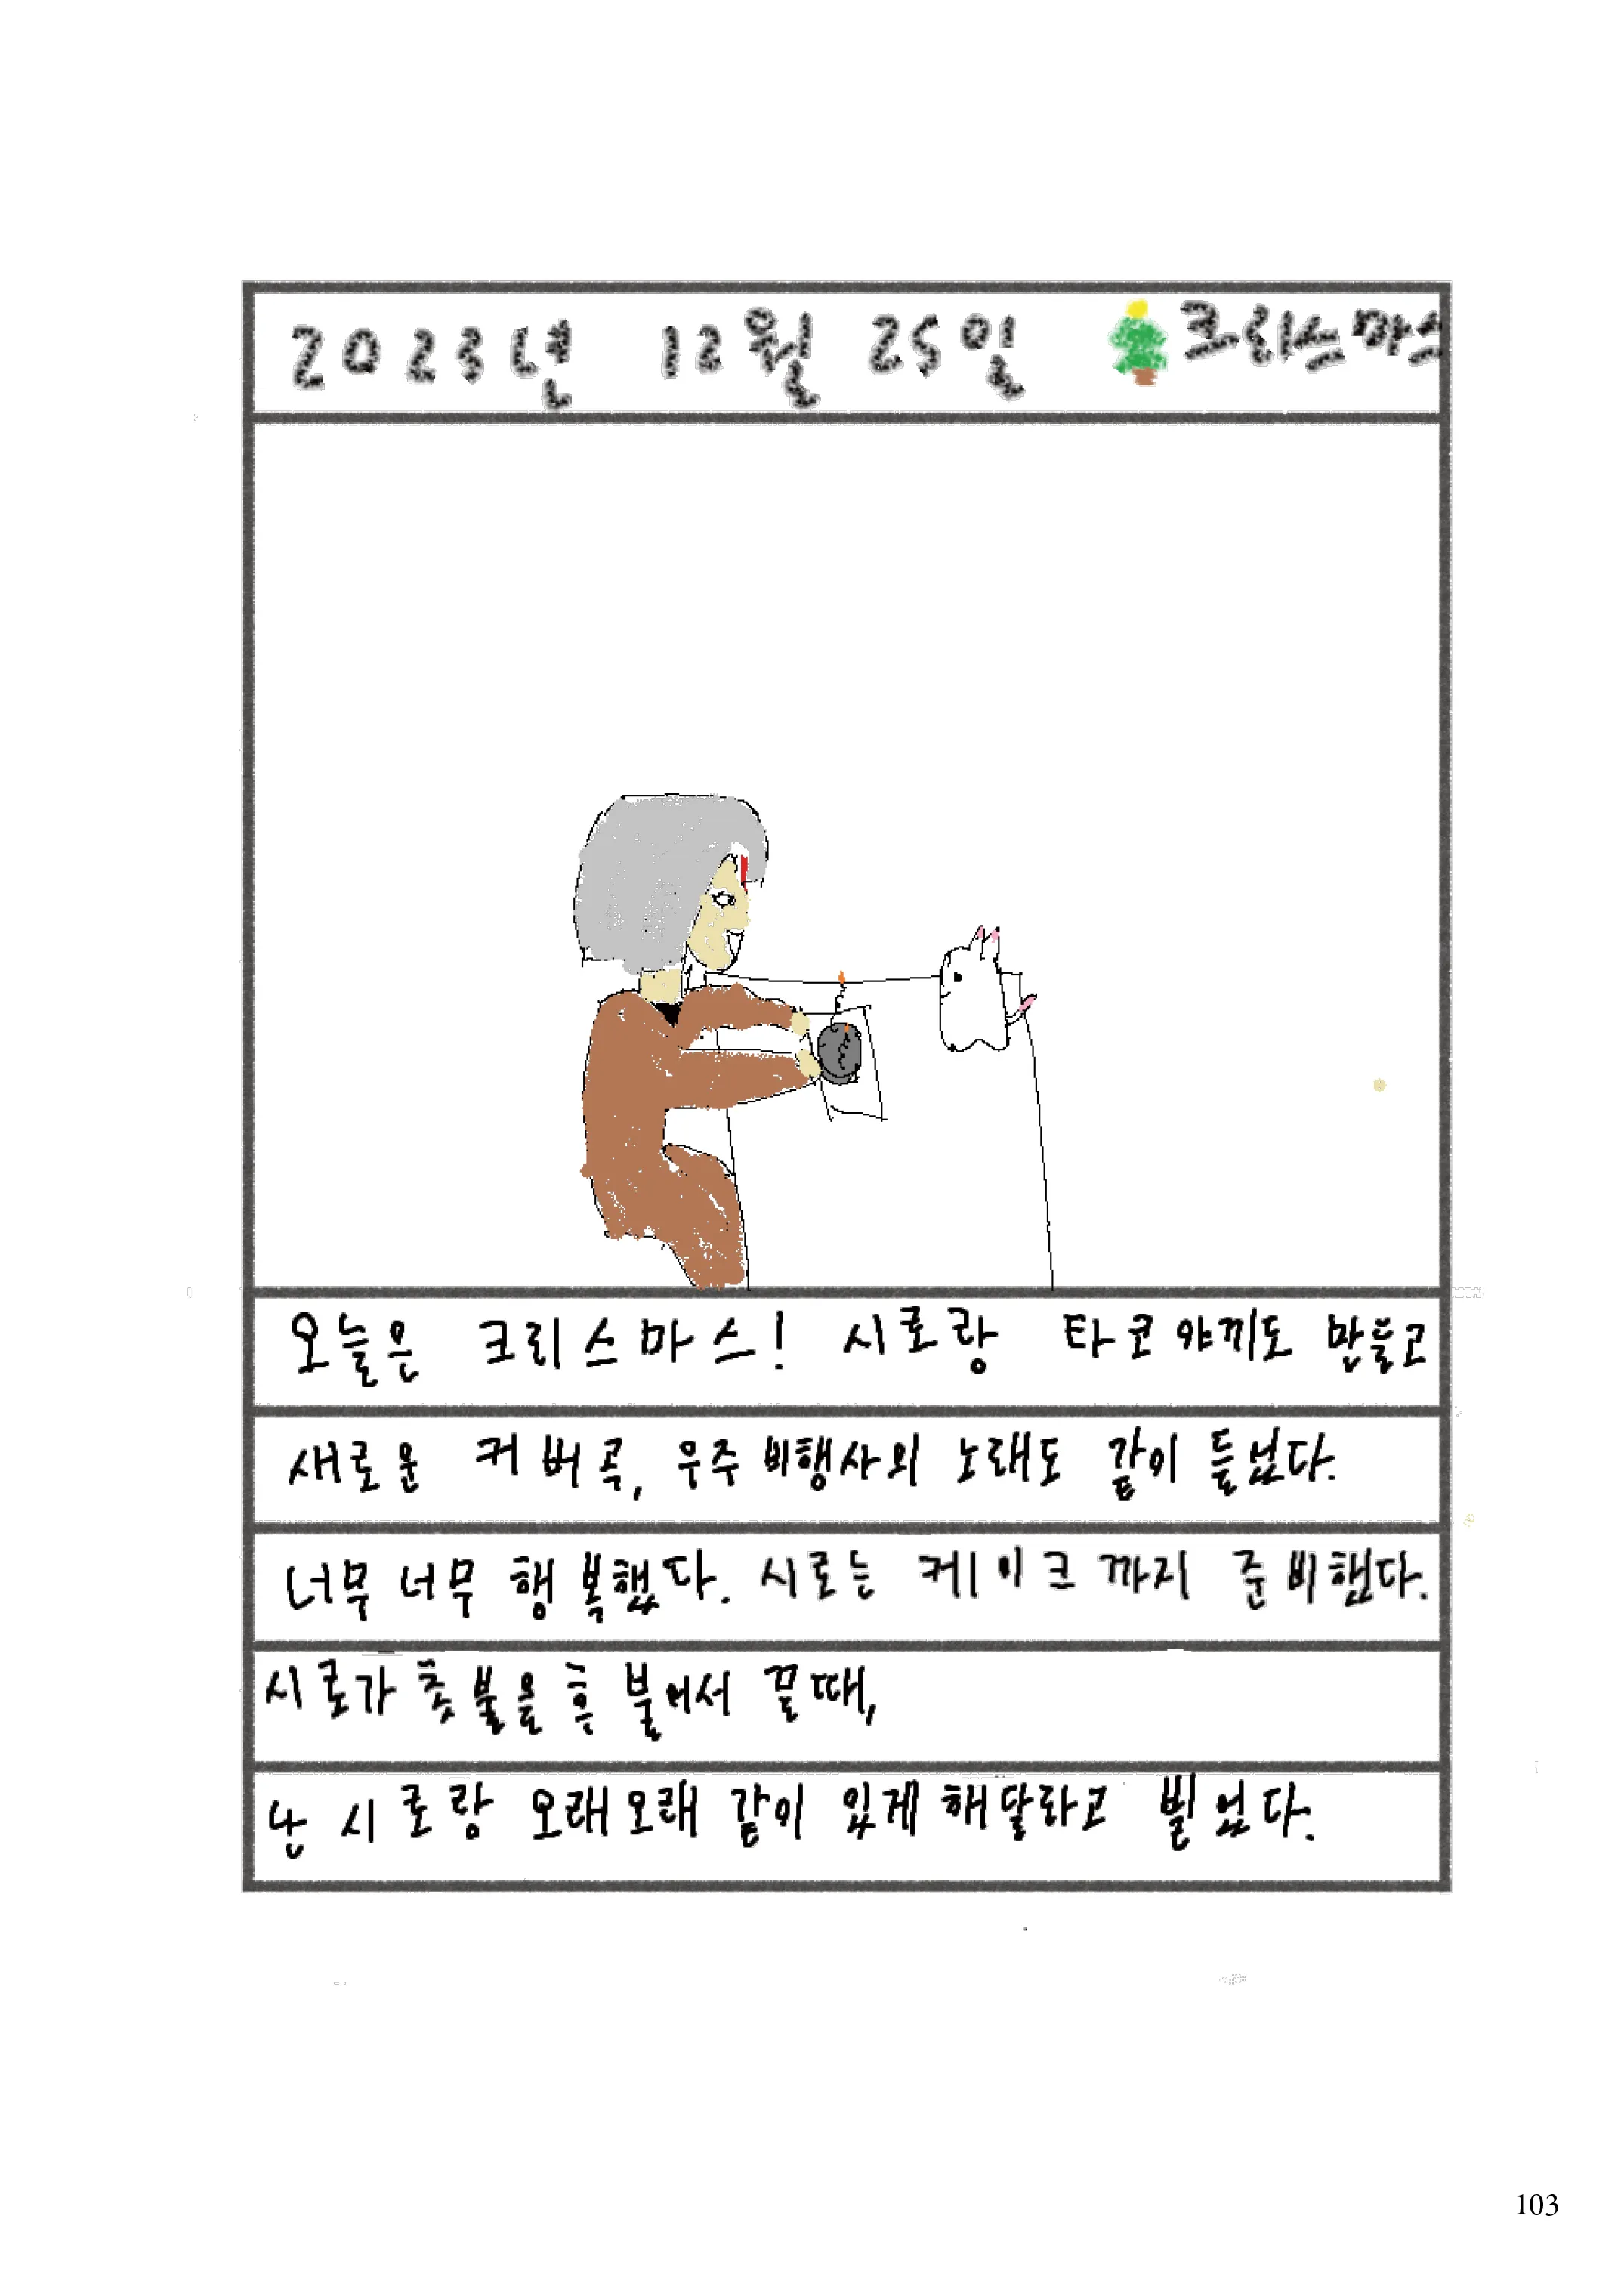 2023년 12월 25일 크리스마스
오늘은 크리스마스! 시로랑 타코야끼도 만들고
새로운 커버곡, 우주비행사의 노래도 같이 들었다.
너무너무 행복했다. 시로는 케이크까지 준비했다.
시로가 촛불을 흔 불어서 끌때,
난 시로랑 오래오래 같이 있게 해달라고 빌었다.
103